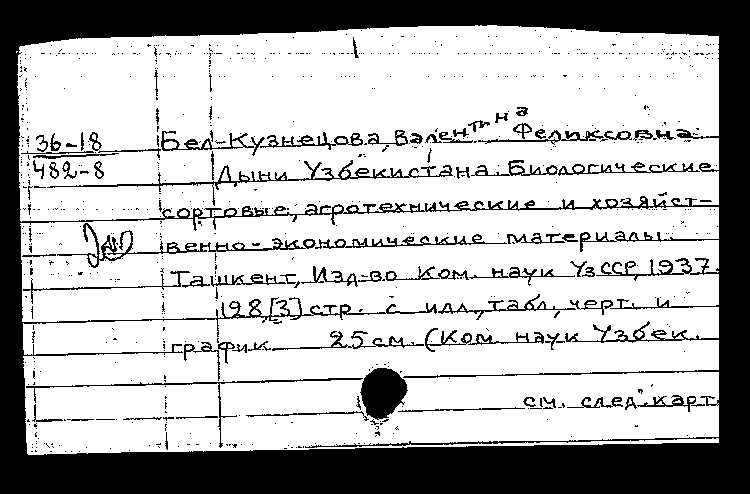 36-18
482-8
Бел-Кузнецова, Валентина Феликсовна
Дыни Узбекистана. Биологические
сортовые, агротехнические и хозяйст-
венно-экономические материалы.
Ташкент, Изд-во Ком. наук УзССР, 1937.
128,[3] стр. с илл., табл., черт. и
график. 25 см. (Ком. наук Узбек.
см. след. карт.